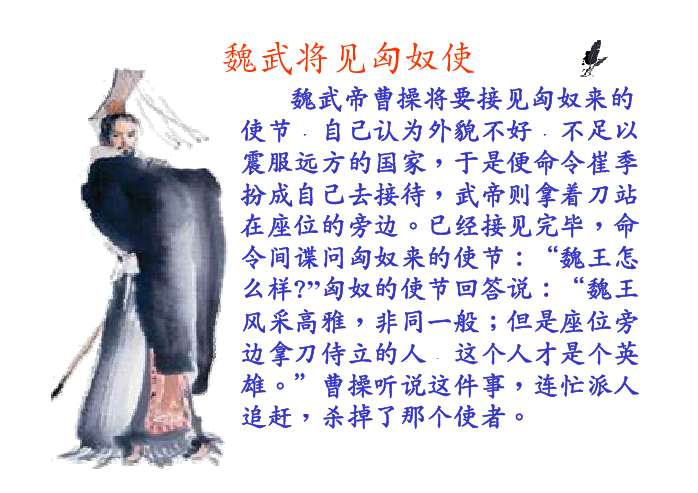 魏武将见匈奴使
魏武帝曹操将要接见匈奴来的
使节﹒自己认为外貌不好﹒不足以
震服远方的国家，于是便命令崔季
扮成自己去接待，武帝则拿着刀站
在座位的旁边。已经接见完毕，命
令间谍问匈奴来的使节：“魏王怎
么样?”匈奴的使节回答说：“魏王
风采高雅，非同一般；但是座位旁
边拿刀侍立的人﹒这个人才是个英
雄。”曹操听说这件事，连忙派人
追赶，杀掉了那个使者。